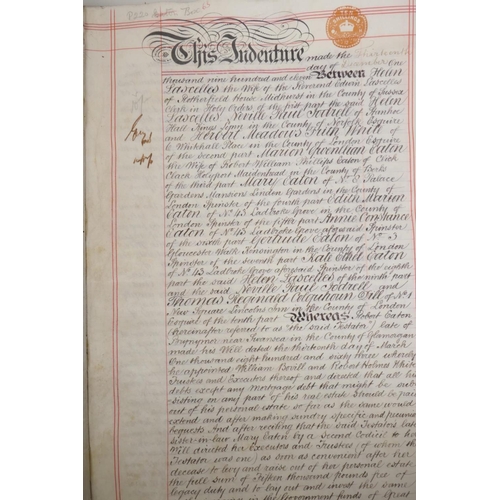 This Indenture made the
day of December One
thousand nine hundred and eleven Between Helen
Lascelles the Wife of the Reverend Edwin Lascelles
of Rotherfield House Midhurst in the County of Sussex
Clerk in Holy Orders of the first part the said Helen
Lascelles Neville Paul Jodrell of Stanhoe
Hall Kings Lynn in the County of Norfolk Esquire
and Herbert Meadows Frith White of
6 Whitehall Place in the County of London Esquire
of the second part Marion Grantham Eaton
the Wife of Robert William Phillips Eaton of Click
Clack Holyport Maidenhead in the County of Berks
of the third part Mary Eaton of No 5 Palace
Gardens Mansions London Gardens in the County of
London Spinster of the fourth part Edith Marion
Eaton of No 43 Ladbroke Grove in the County of
London Spinster of the fifth part Annie Constance
Eaton of No 43 Ladbroke Grove aforesaid Spinster
of the sixth part Gertrude Eaton of No 3
Gloucester Walk Kensington in the County of London
Spinster of the seventh part Kate Ethel Eaton
of No 43 Ladbroke Grove aforesaid Spinster of the eighth
part the said Helen Lascelles of the ninth part
and the said Neville Paul Jodrell and
Thomas Reginald Colquhoun Dill of No 1
New Square Lincolns Inn in the County of London
Esquire of the tenth part Whereas Robert Eaton
(hereinafter referred to as "the said Testator") late of
Brynymor near Swansea in the County of Glamorgan
made his Will dated the thirteenth day of March
One thousand eight hundred and sixty three whereby
he appointed William Bovill and Robert Holmes White
Trustees and Executors thereof and directed that all his
debts except any Mortgage debt that might be sub
sisting in any part of his real estate should be paid
out of his personal estate so far as the same would
extend and after making sundry specific and pecuniary
bequests And after reciting that the said Testators late
sister in law Mary Eaton by a Second Codicil to her
Will directed her Executors and Trustees (of whom the
Testator was one) as soon as convenient after her
decease to levy and raise out of her personal estate
the full sum of Fifteen thousand pounds free of
legacy duty and to lay out and invest the same
in the Government funds of